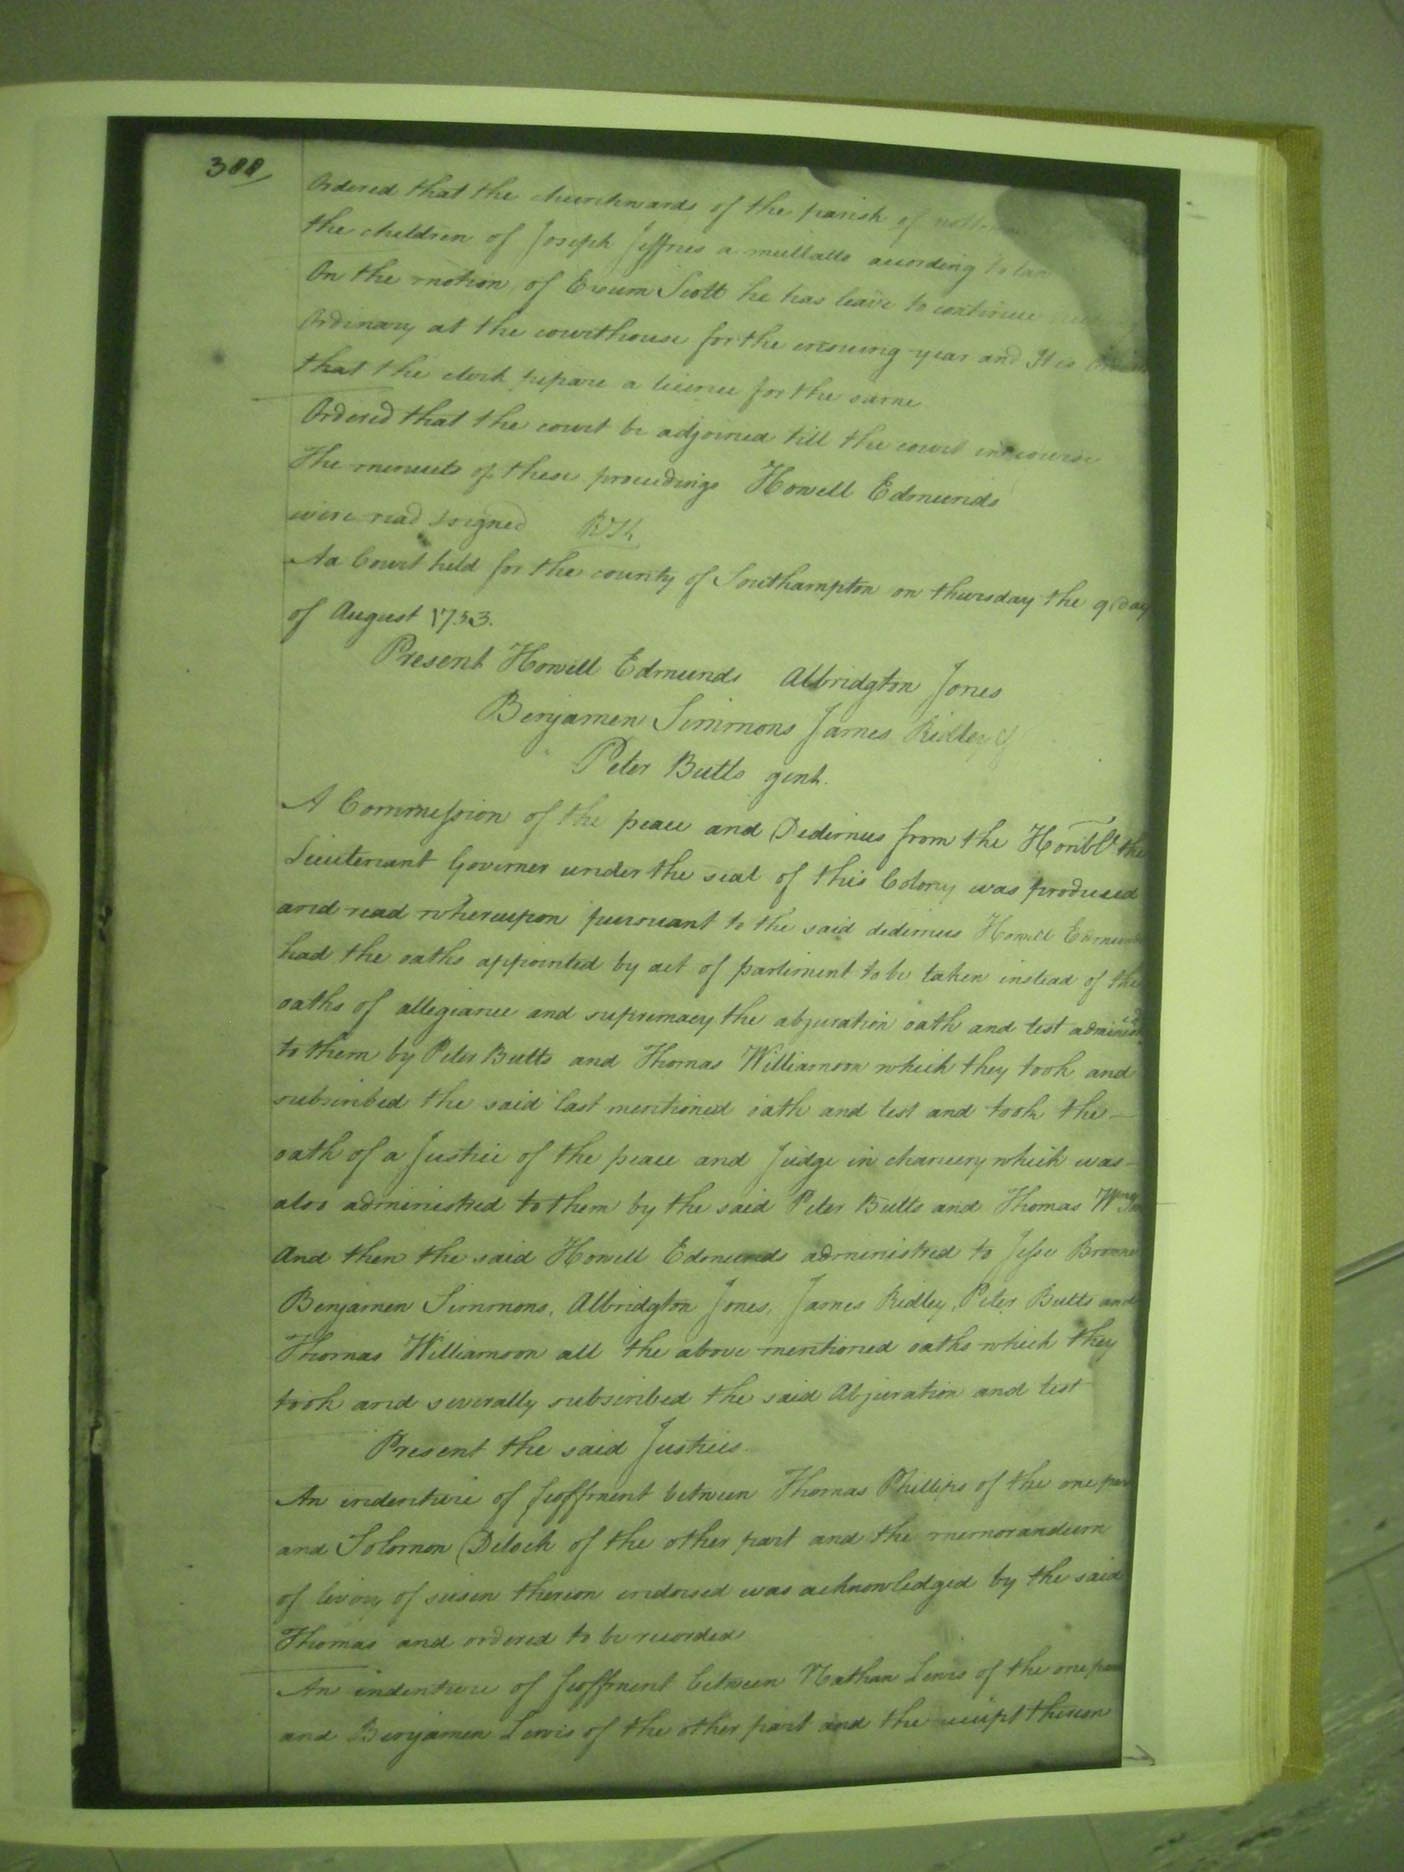 388
Ordered that the churchwards of the parish of
the children of Joseph Jeffries a mullatto acording to law
On the motion of Exum Scott he has leave to continue
Ordinary at the courthouse for the ensuing year and It is
that the clerk prepare a licence for the same
Ordered that the court be adjorned till the court in course
The minuets of these proceedings Howell Edmunds
were read & signed
Aa Court held for the county of Southampton on thursday the 9 day
of August 1753.
Present Howell Edmunds Albridgton Jones
Benjamen Simmons James Ridley &
Peter Butts gent.
A Commission of the peace and Dedimus from the Honble the
Lieutenant Governer under the seal of this Colony was produced
and read whereupon pursuant to the said dedimus Howell Edmunds
had the oaths appointed by act of parliment to be taken instead of the
oaths of allegiance and supremacy the abjuration oath and test
to them by Peter Butts and Thomas Williamson which they took and
subscribed the said last mentioned oath and test and took the
oath of a Justice of the peace and Judge in chancery which was
also administred to them by the said Peter Butts and Thomas
And then the said Howell Edmunds administred to Jesse Browne
Benjamen Simmons, Albridgton Jones, James Ridley, Peter Butts and
Thomas Williamson all the above mentioned oaths which they
took and severally subscribed the said Abjuration and test
Present the said Justices.
An indenture of feoffment between Thomas Phillips of the one part
and Solomon Deloch of the other part and the memorandum
of livory of seisen thereon indorsed was acknowledged by the said
Thomas and ordered to be recorded
An indenture of feoffment between Nathan Lewis of the one part
and Benjamen Lewis of the other part and the reciept thereon